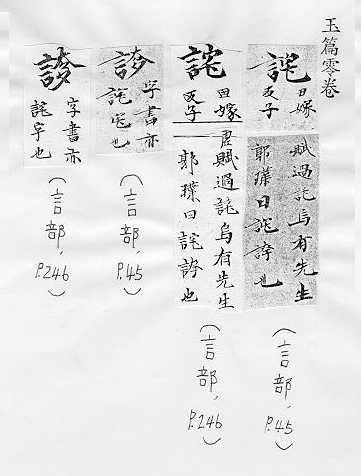 玉篇零卷
詫
丑嫁
反子
賦過詫烏有先生
郭璞曰詫誇也
(言部, P.45)
詫
丑嫁
反子
虛賦過詫烏有先生
郭璞曰詫誇也
(言部, P.246)
字書亦
詫字也
(言部, P.45)
字書亦
詫字也
(言部, P.246)